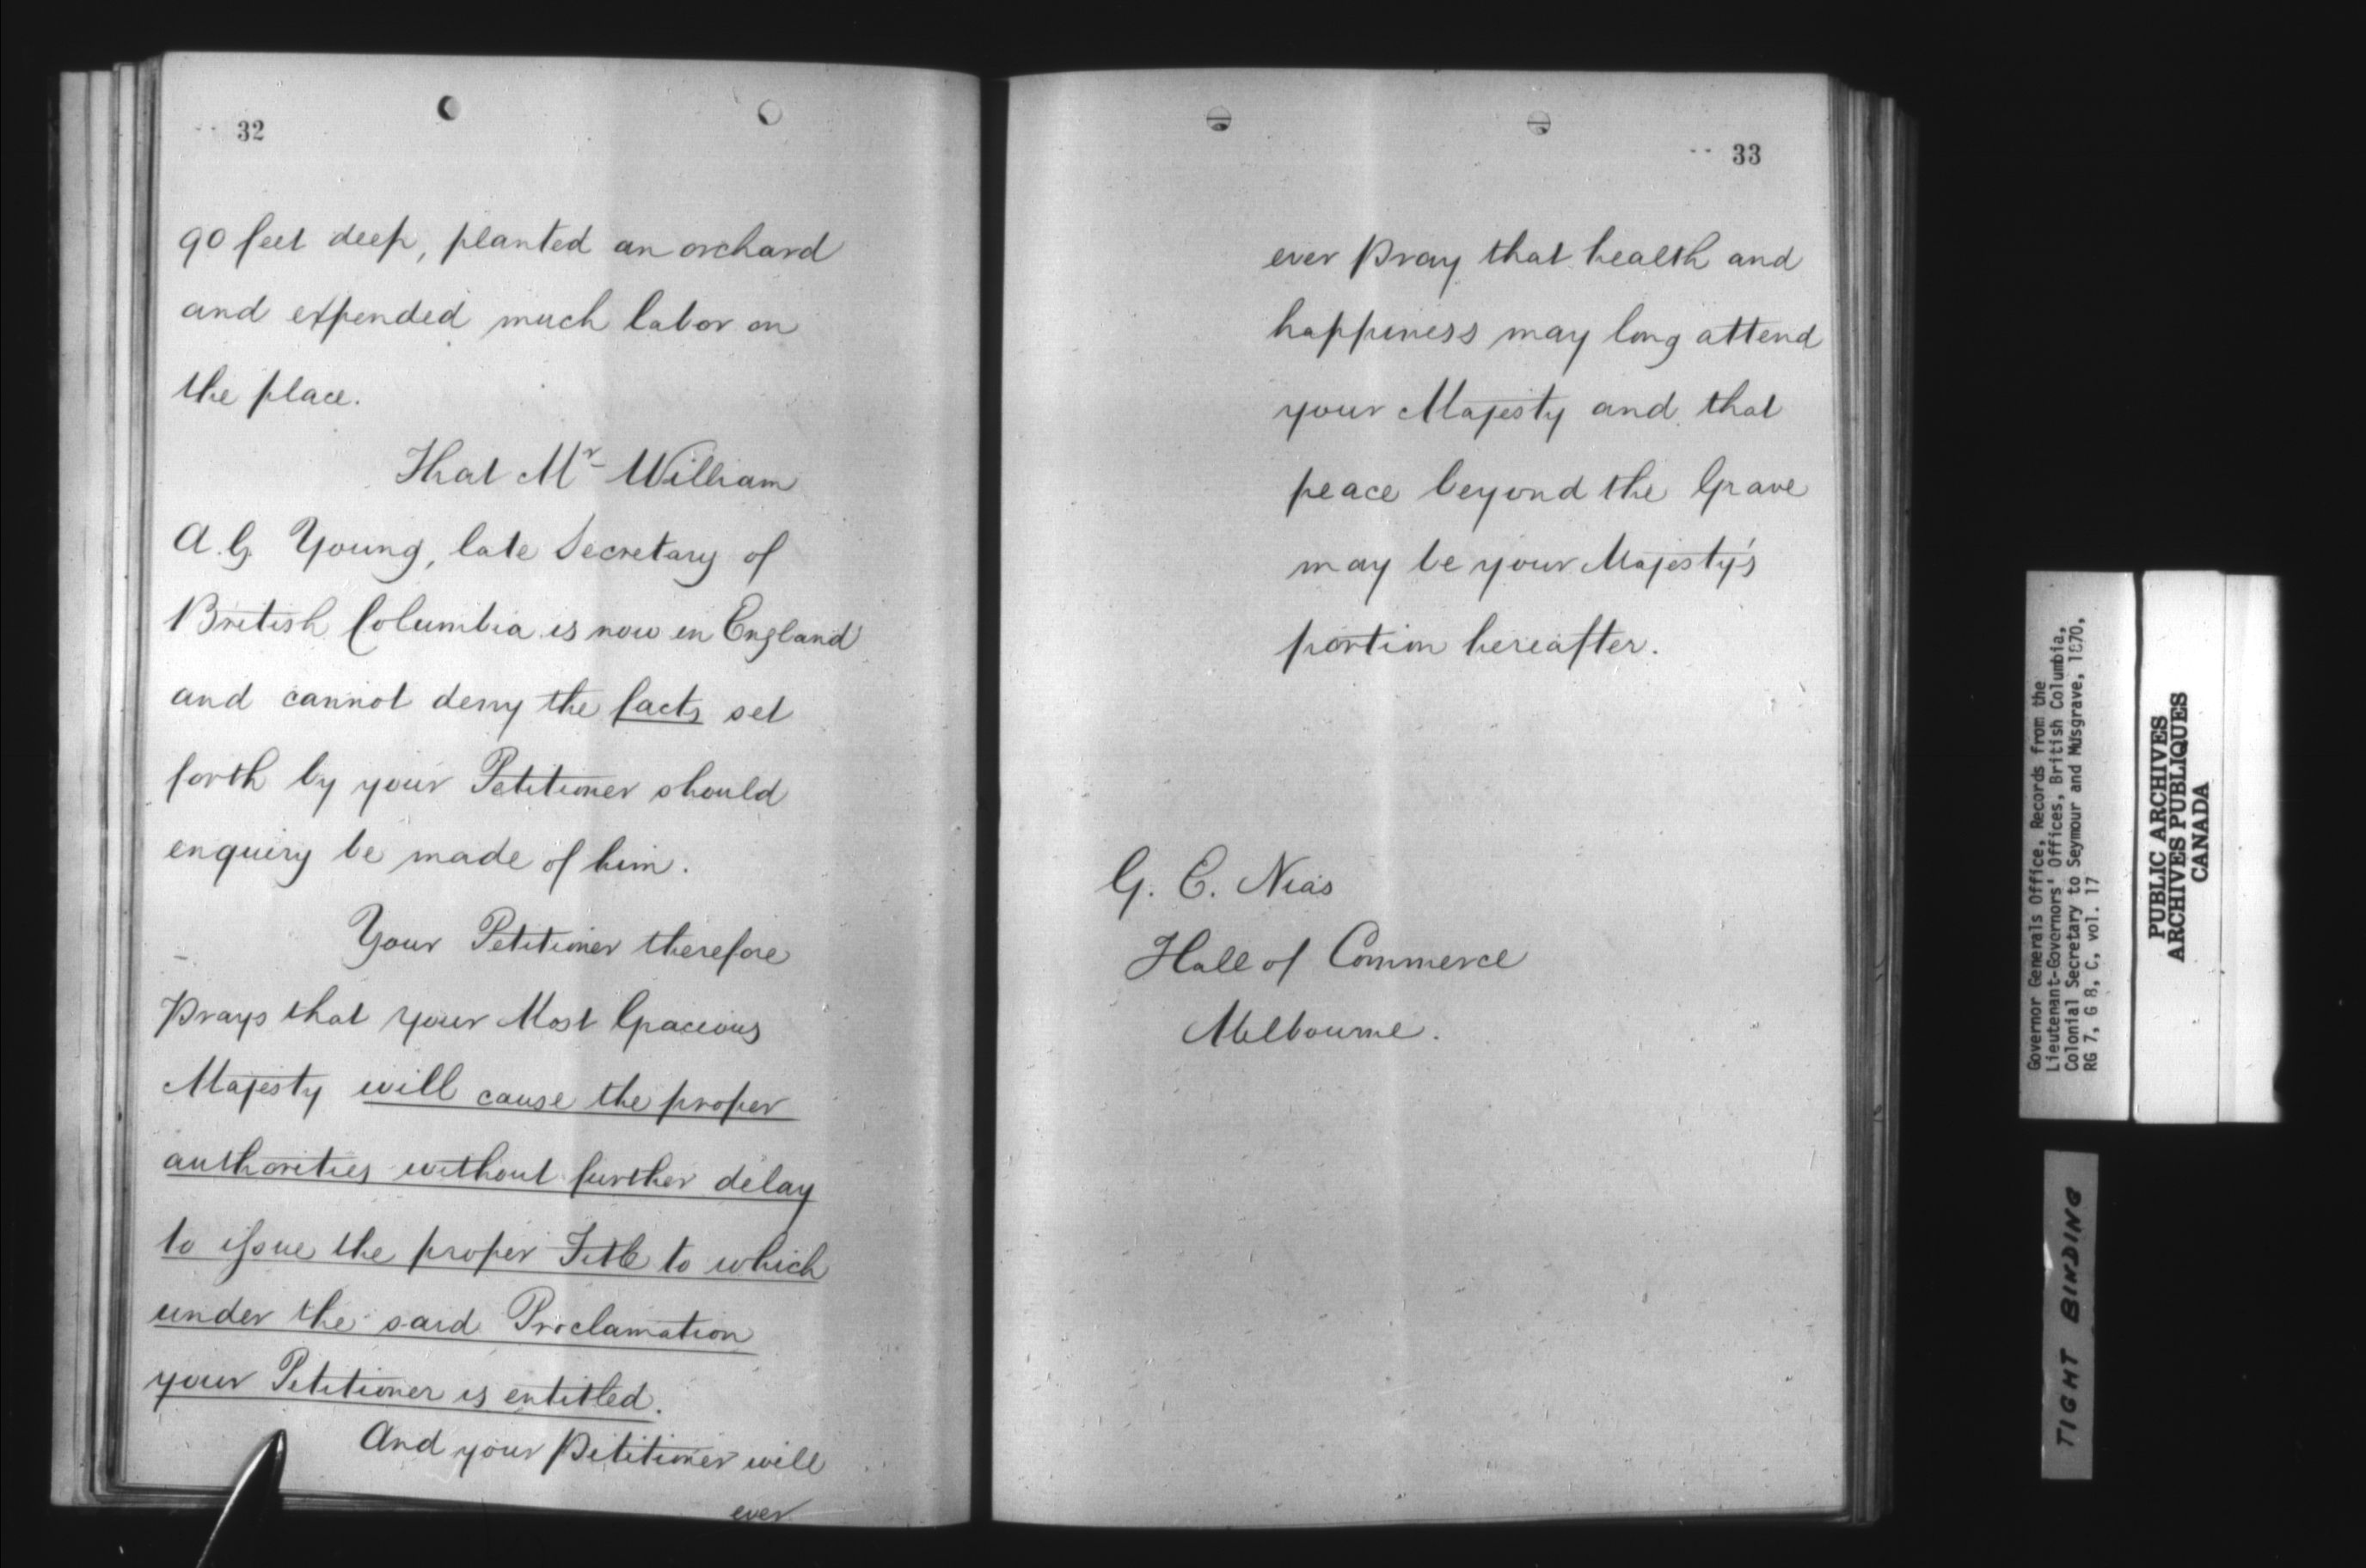 32
90 feet deep, planted an orchard
and expended much labor on
the place.
That Mr William
A. G. Young, late Secretary of
British Columbia is now in England
and cannot deny the facts set
forth by your Petitioner should
enquiry be made of him.
Your Petitioner therefore
prays that your Most Gracious
Majesty will cause the proper
authorities without further delay
to issue the proper Title to which
under the said Proclamation
your Petitioner is entitled.
And your Petitioner will
ever
33
ever pray that health and
happiness may long attend
your Majesty and that
peace beyond the Grave
may be your Majesty's
portion hereafter.
G. E. Nias
Hall of Commerce
Melbourne.
Governor Generals Office, Records from the
Lieutenant-Governors' Offices, British Columbia,
Colonial Secretary to Seymour and Musgrave, 1870,
RG 7, G 8, C, vol. 17
PUBLIC ARCHIVES
ARCHIVES PUBLIQUES
CANADA
TIGHT BINDING